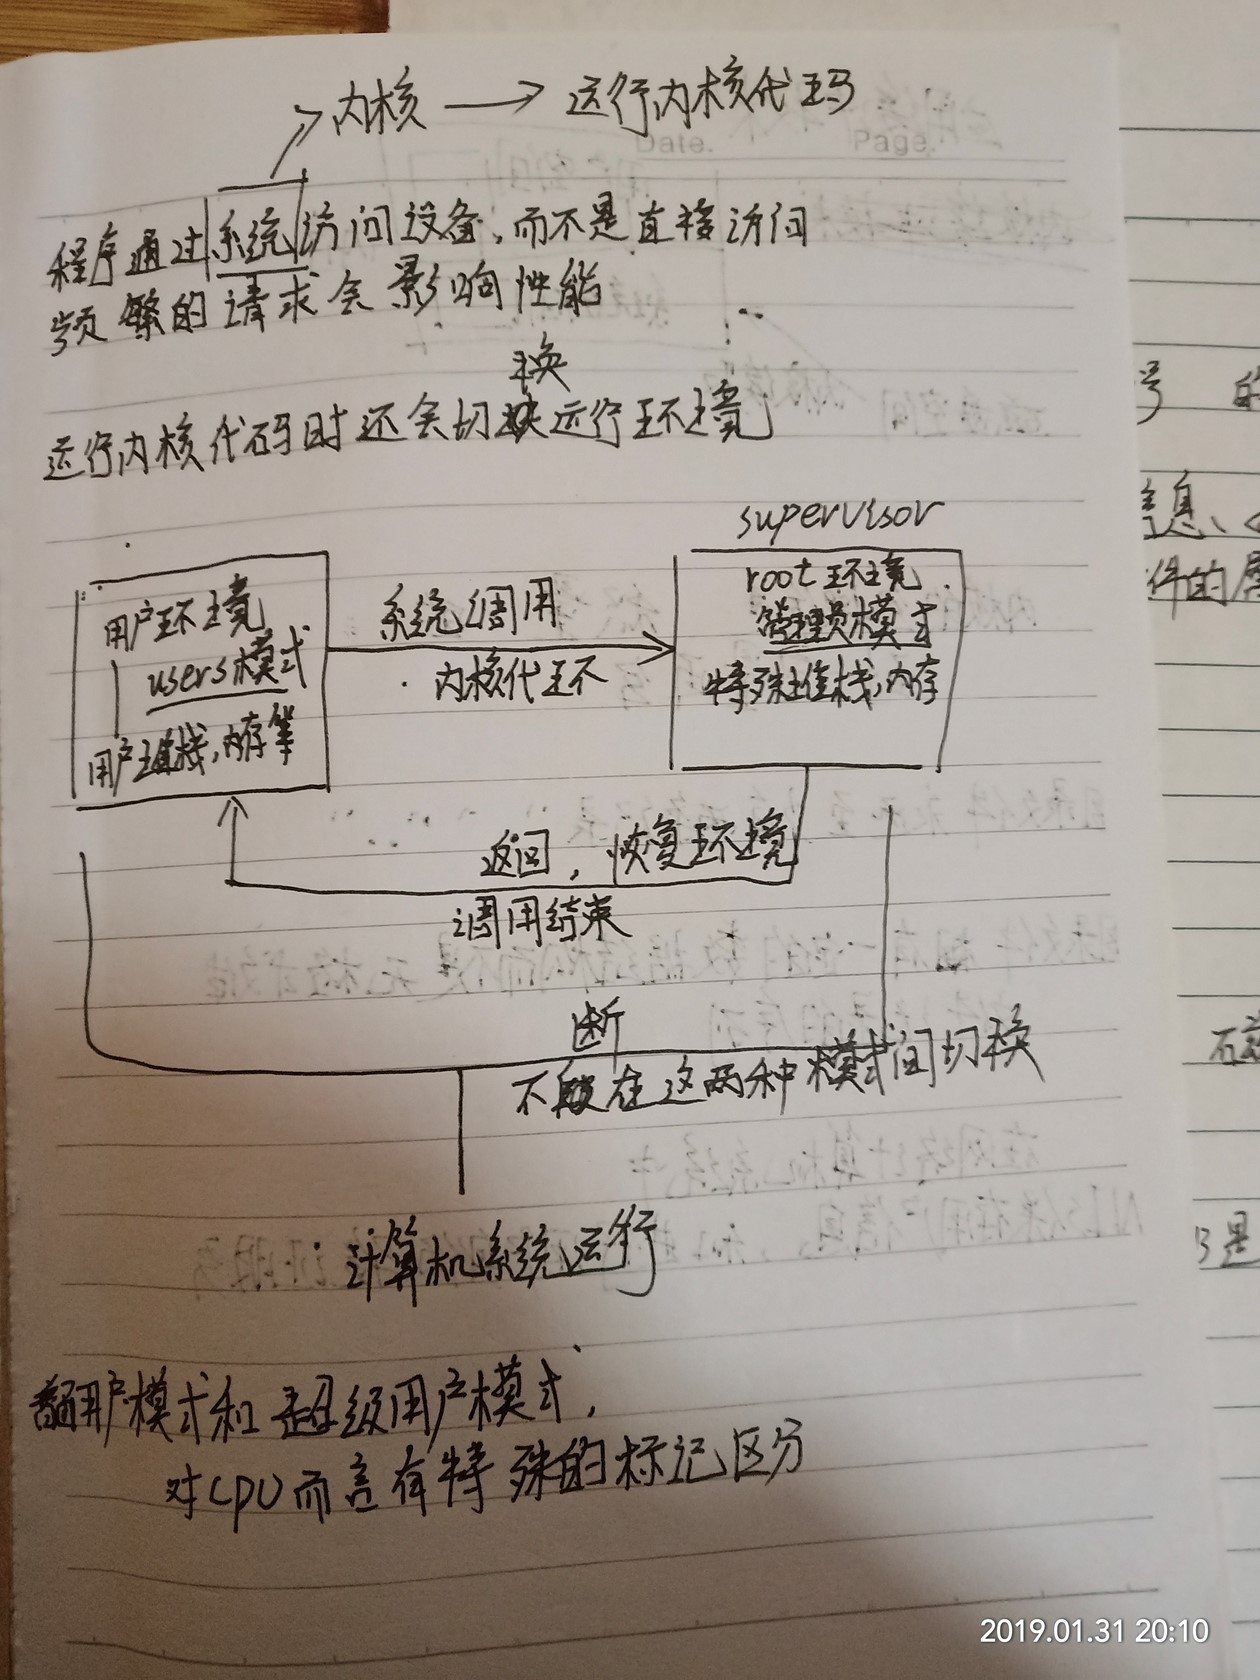 内核 → 运行内核代码
Date. Page.
程序通过系统访问设备,而不是直接访问
频繁的请求会影响性能
换
运行内核代码时还会切换运行环境
supervisor
用户环境
users模式
用户堆栈,内存等
系统调用
内核代环
root环境
管理员模式
特殊堆栈,内存
返回,恢复环境
调用结束
断
不断在这两种模式间切换
计算机系统运行
用户模式和超级用户模式,
对CPU而言有特殊的标记区分
号 的
信息、
件的属
是
2019.01.31 20:10